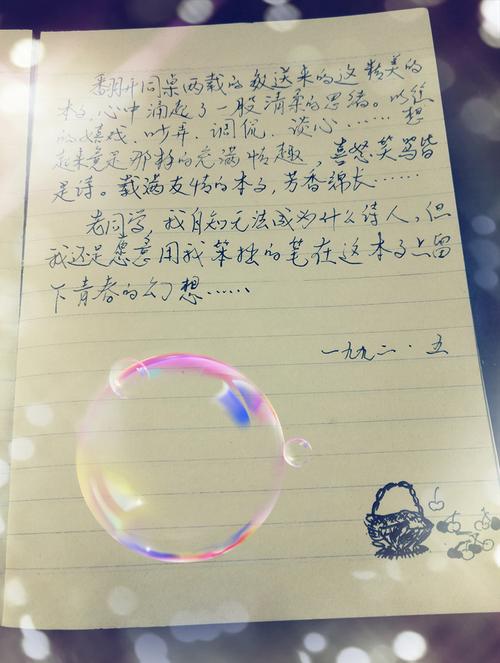 翻开同桌两载的敖送来的这精美的
本子,心中涌起了一股清柔的思绪。以往
的嬉戏、吵弄、调侃、谈心……想
起来竟是那样的充满情趣,喜怒笑骂皆
是诗。载满友情的本子,芳香绵长……
老同学,我自知无法成为什么诗人,但
我还是愿意用我笨拙的笔在这本子上留
下青春的幻想……
一九九二·五